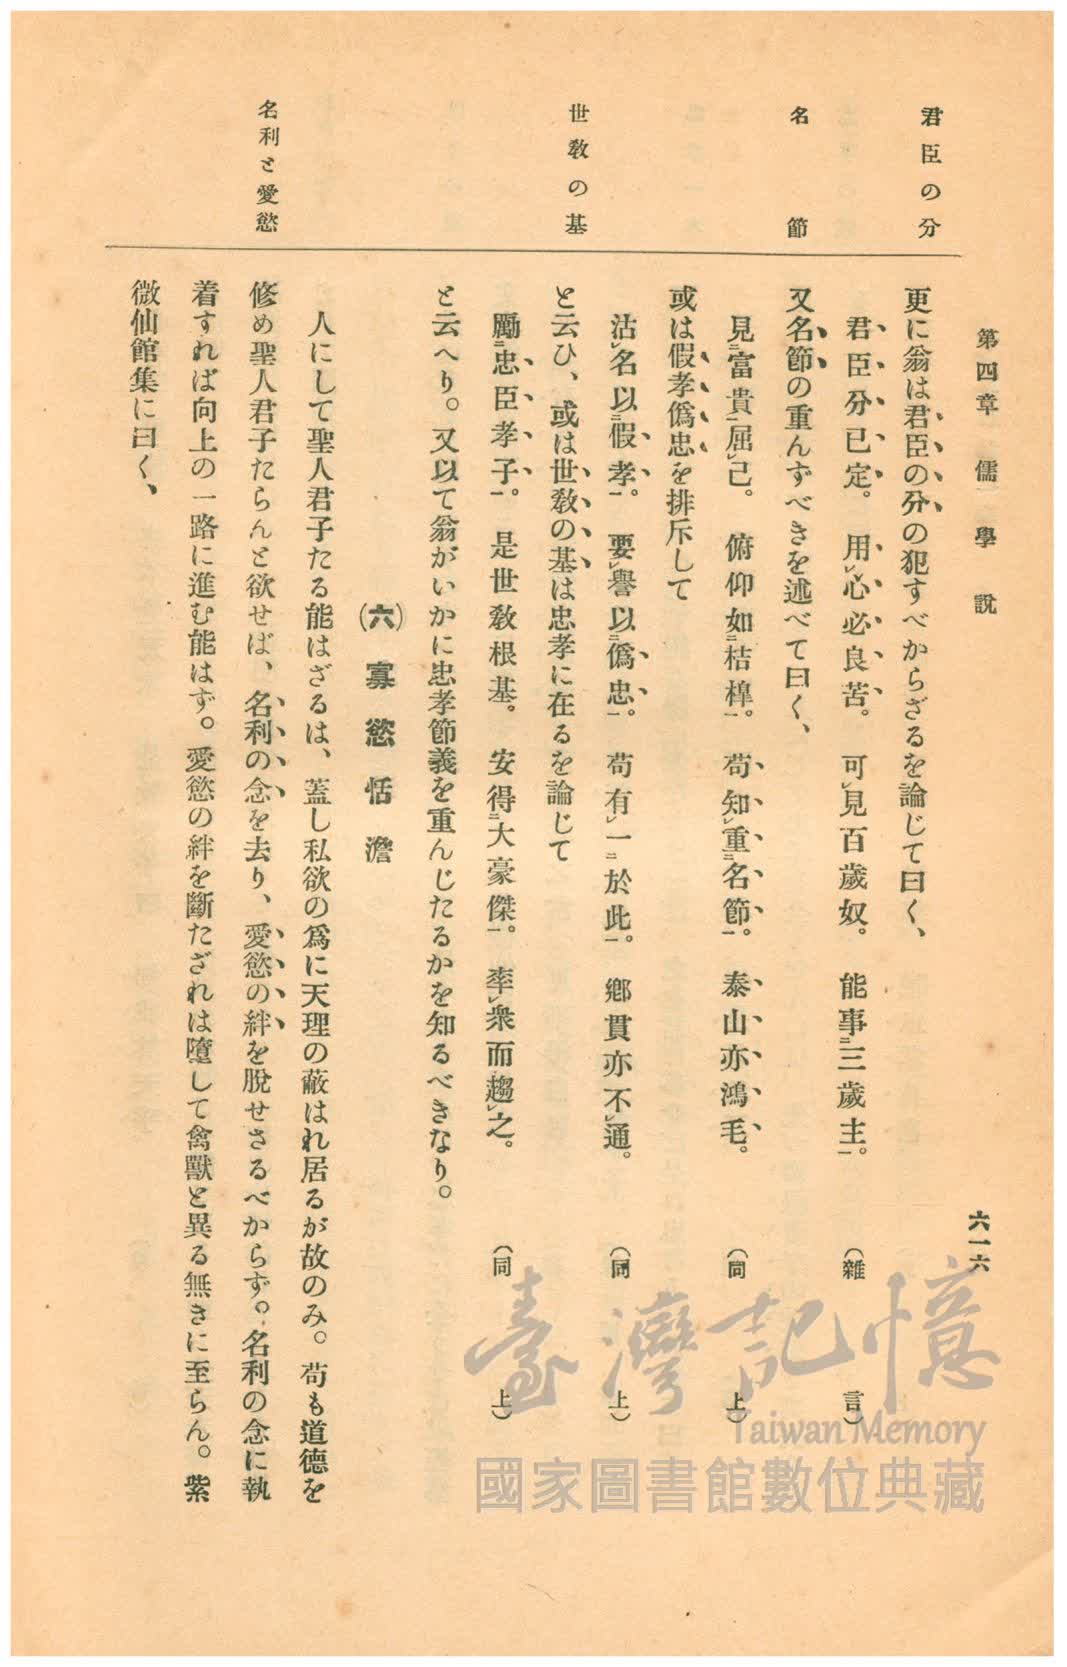 第四章 儒學說
六一六
君臣の分
更に翁は君臣の分の犯すべからざるを論じて曰く、
君臣分已定。用レ心必良苦。可レ見百歲奴。能事二三歲主一。（雜言）
名節
又名節の重んずべきを述べて曰く、
見二富貴一屈レ己。俯仰如二桔槹一。苟知レ重二名節一。泰山亦鴻毛。（同上）
或は假孝僞忠を排斥して
沽レ名以二假孝一。要レ譽以二僞忠一。苟有レ一二於此一。鄉貫亦不レ通。（同上）
世敎の基
と云ひ、或は世敎の基は忠孝に在るを論じて
勵二忠臣孝子一。是世敎根基。安得二大豪傑一。率レ衆而趨レ之。（同上）
と云へり。又以て翁がいかに忠孝節義を重んじたるかを知るべきなり。
（六）寡慾恬澹
人にして聖人君子たる能はざるは、蓋し私欲の爲に天理の蔽はれ居るが故のみ。苟も道德を
名利と愛慾
修め聖人君子たらんと欲せば、名利の念を去り、愛慾の絆を脫せさるべからず。名利の念に執
着すれば向上の一路に進む能はず。愛慾の絆を斷たざれは墮して禽獸と異る無きに至らん。紫
微仙館集に曰く、
臺灣記憶
Taiwan Memory
國家圖書館數位典藏